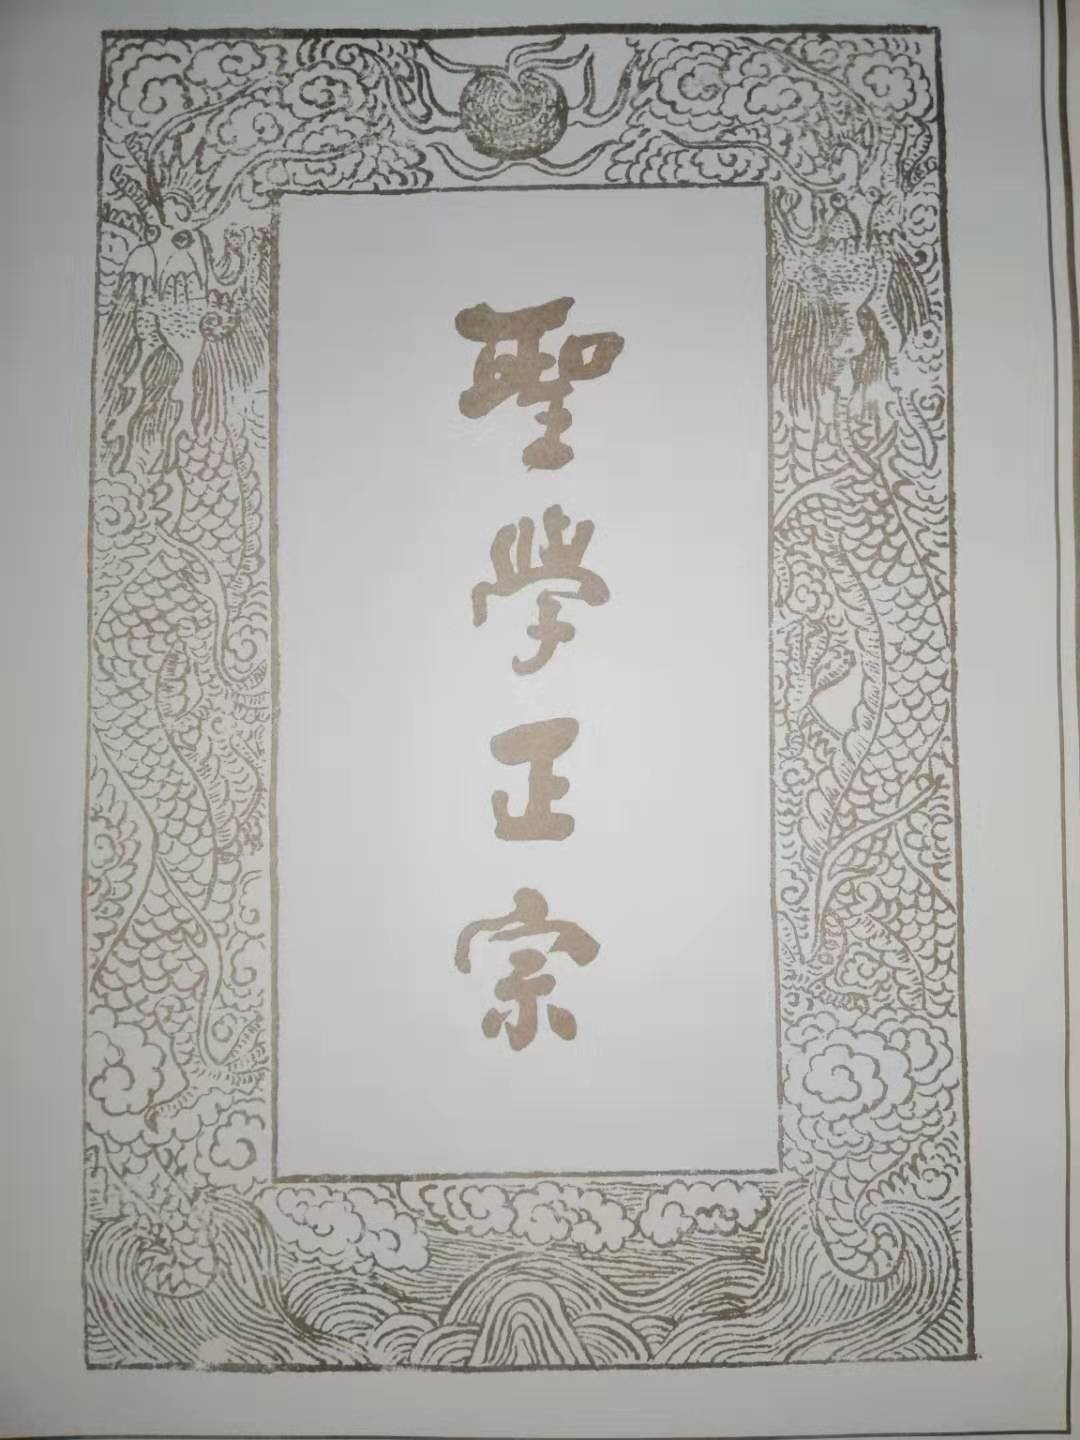 聖學正宗